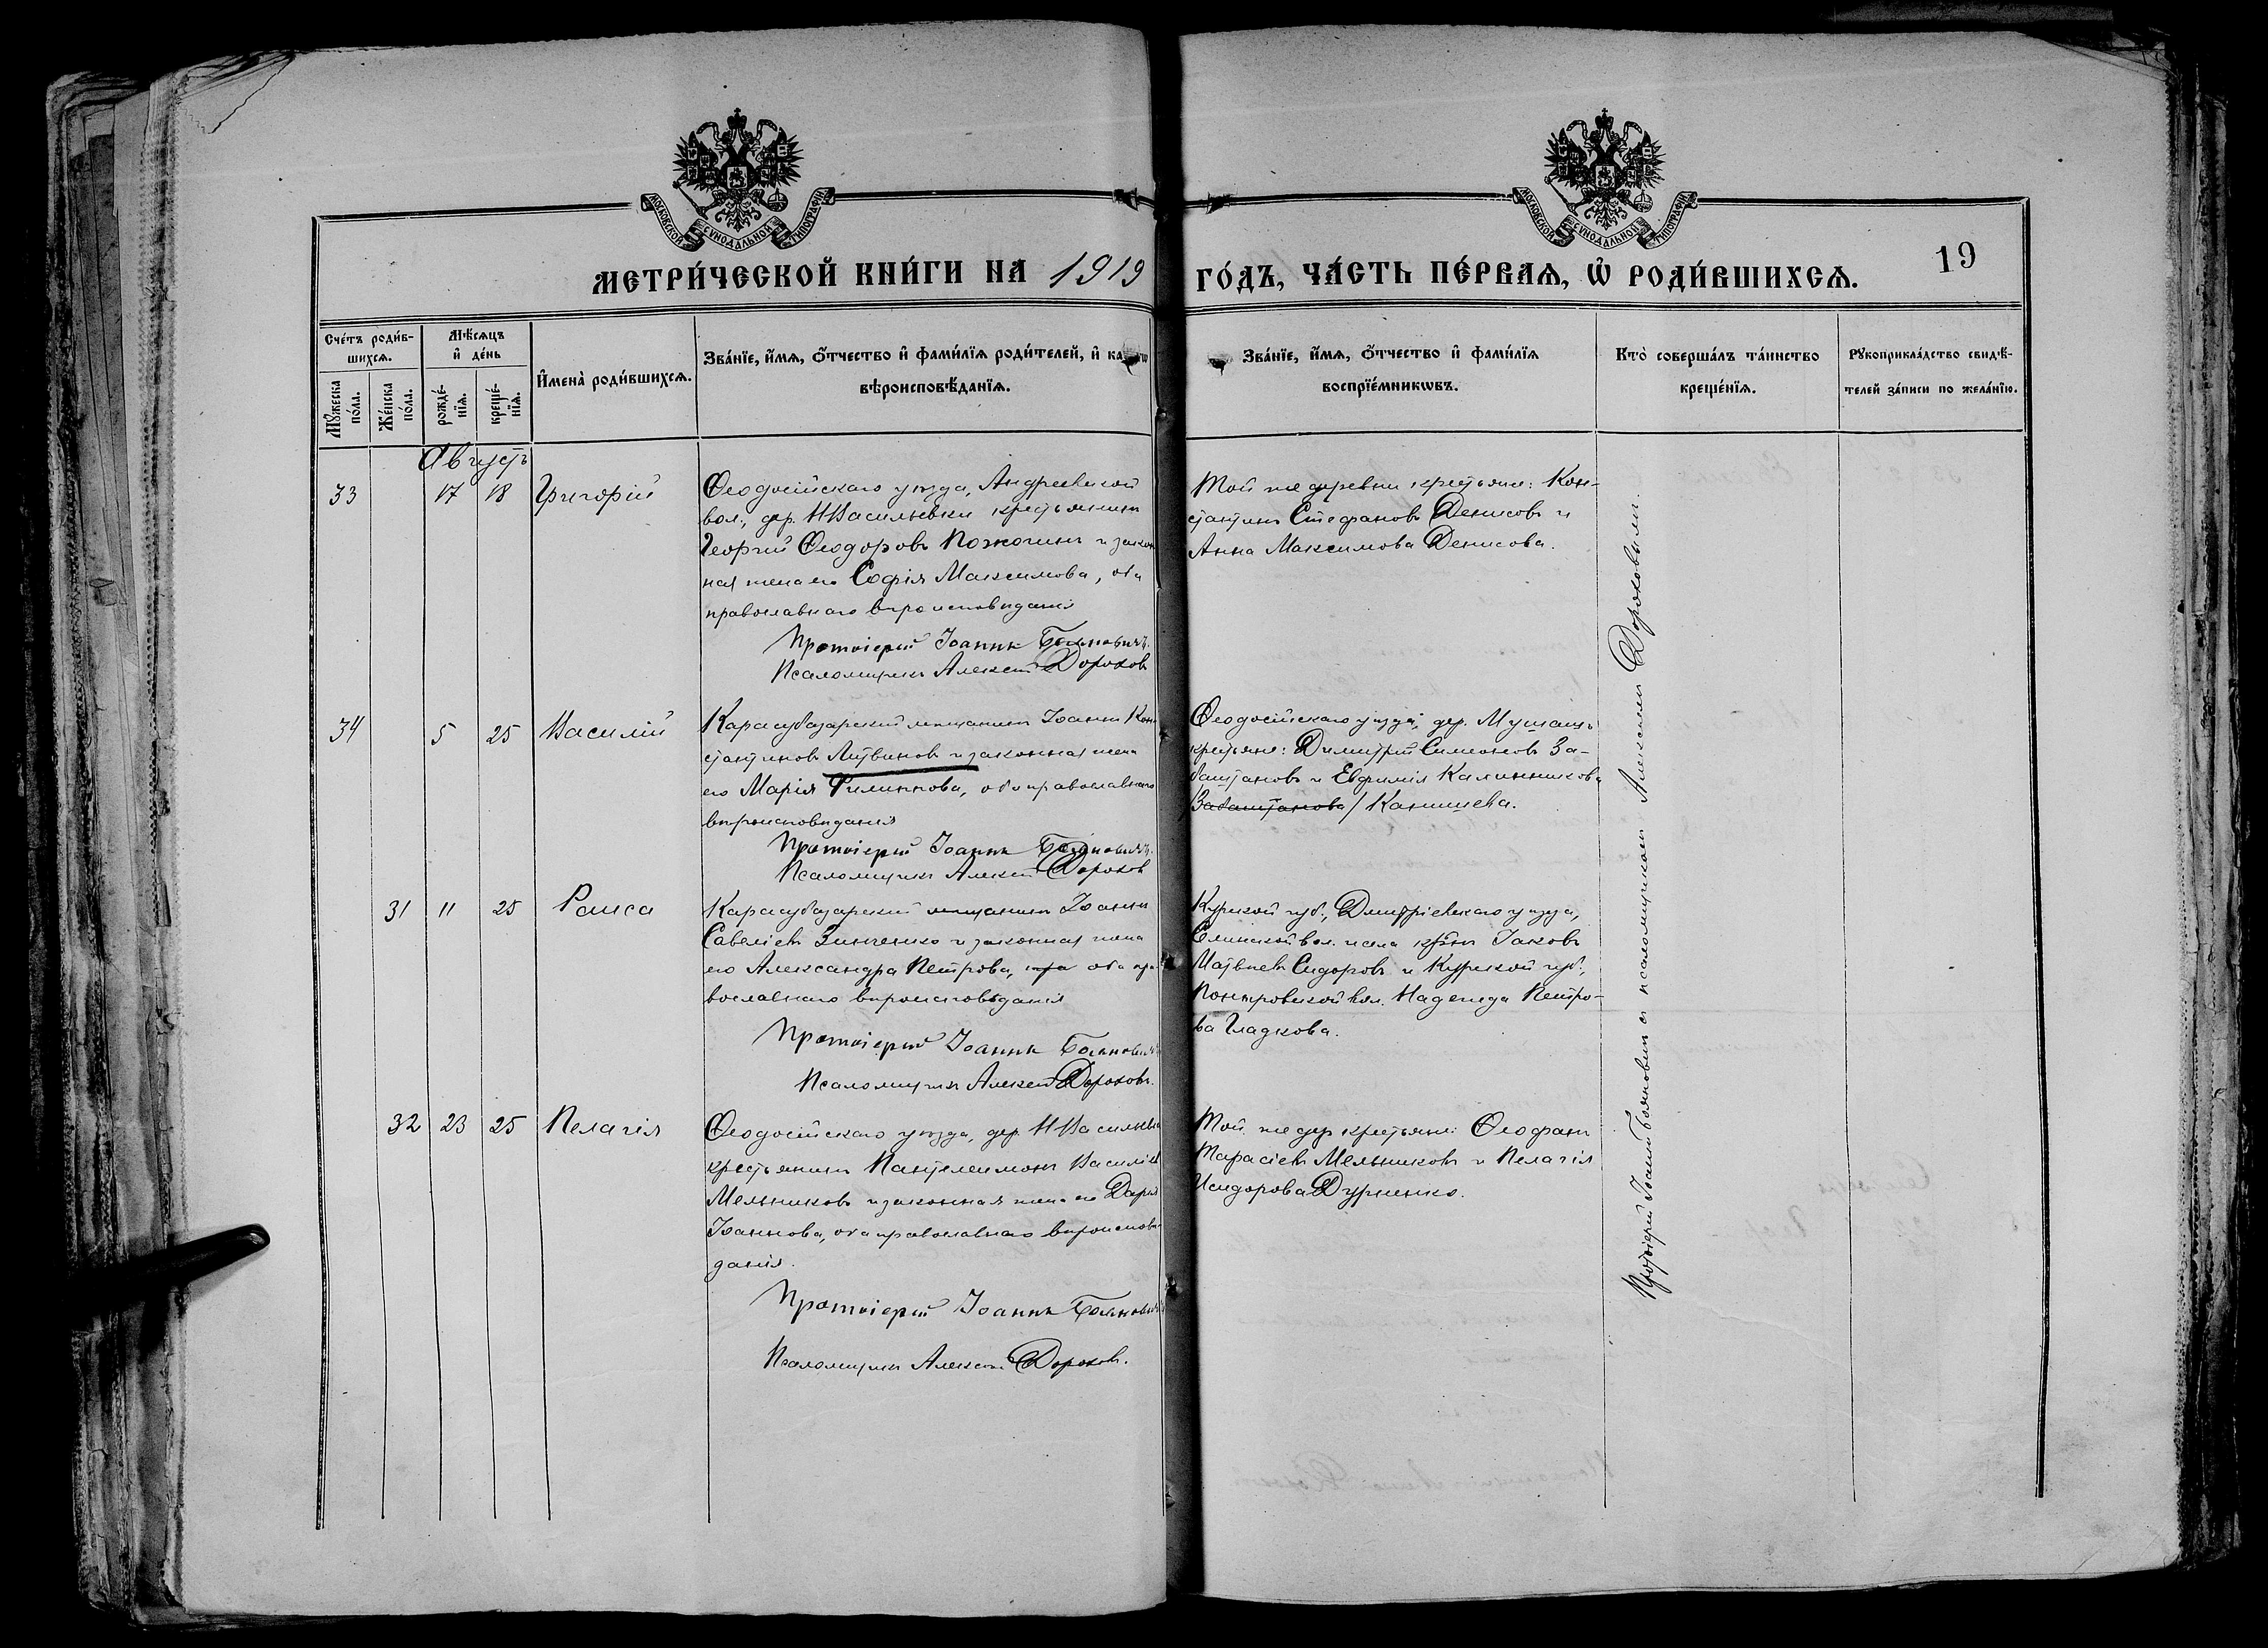 МОСКОВСКОЙ СѴНОДАЛЬНОЙ ТИПОГРАФІИ
МОСКОВСКОЙ СѴНОДАЛЬНОЙ ТИПОГРАФІИ
МЕТРИ́ЧЕСКОЙ КНИ́ГИ НА 1919 ГО́ДЪ, ЧА́СТЬ ПЕ́РВАЯ, Ѡ҆ РОДИ́ВШИХСЯ.
19
Сче́тъ роди́в-
шихся.
Мꙋ́жеска по́ла.
Же́нска по́ла.
Мѣ́сяцъ
и҆ де́нь
рожде́-
нїя.
креще́-
нїя.
И҆мена̀ роди́вшихся.
Зва́нїе, и҆́мя, ѻ҆́тчество и҆ фами́лїя роди́телей, и҆ ка
вѣроисповѣ́данїя.
Зва́нїе, и҆́мя, ѻ҆́тчество и҆ фами́лїя
воспрїе́мникѡвъ.
Кто̀ соверша́лъ та́инство
креще́нїя.
Рꙋкоприкла́дство свидѣ́-
телей за́писи по жела́нїю.
Августъ
33 17 18 Григорій
Ѳеодосійскаго уѣзда, Андреевской
вол., дер. Н Васильевки крестьянинъ
Георгій Ѳеодоровъ Пожогинъ и закон
ная жена его Софія Максимова, оба
православнаго вѣроисповѣданія
Протоіерей Іоаннъ Бояновичъ.
Псаломщикъ Алексѣй Дороховъ
Той же деревни крестьяне: Кон-
стантинъ Стефановъ Денисовъ и
Анна Максимова Денисова.
34 5 25 Василій
Карасубазарский мѣщанинъ Іоаннъ Кон
стантиновъ Литвиновъ и законная жена
его Марія Филиппова, оба православнаго
вѣроисповѣданія
Протоіерей Іоаннъ Бояновичъ.
Псаломщикъ Алексѣй Дороховъ
Ѳеодосійскаго уѣзда, дер.
крестьяне: Димитрій Симеоновъ За-
баштановъ и Евфимія Калинникова
Забаштанова / Канищева.
31 11 25 Раиса
Карасубазарский мѣщанинъ Іоаннъ
Савеліевъ Зинченко и законная жена
его Александра Петрова, оба пра
вославнаго вѣроисповѣданія
Протоіерей Іоаннъ Бояновичъ
Псаломщикъ Алексѣй Дороховъ.
Курской губ., Дмитріевскаго уѣзда,
вол. и села кр-нъ Іаковъ
Матвѣевъ Сидоровъ и Курской губ.,
Поныровской вол. Надежда Петро-
ва Гладкова.
32 23 25 Пелагія
Ѳеодосійскаго уѣзда, дер. Н Васильевки
крестьянинъ Пантелеимонъ Василіевъ
Мельниковъ и законная жена его Дарія
Іоаннова, оба православнаго вѣроисповѣ
данія.
Протоіерей Іоаннъ Бояновичъ
Псаломщикъ Алексѣй Дороховъ.
Той же дер крестьяне: Ѳеофанъ
Тарасіевъ Мельниковъ и Пелагія
Исидорова Дурненко.
Протоіерей Іоаннъ Бояновичъ съ псаломщикомъ Алексѣемъ Дороховымъ.